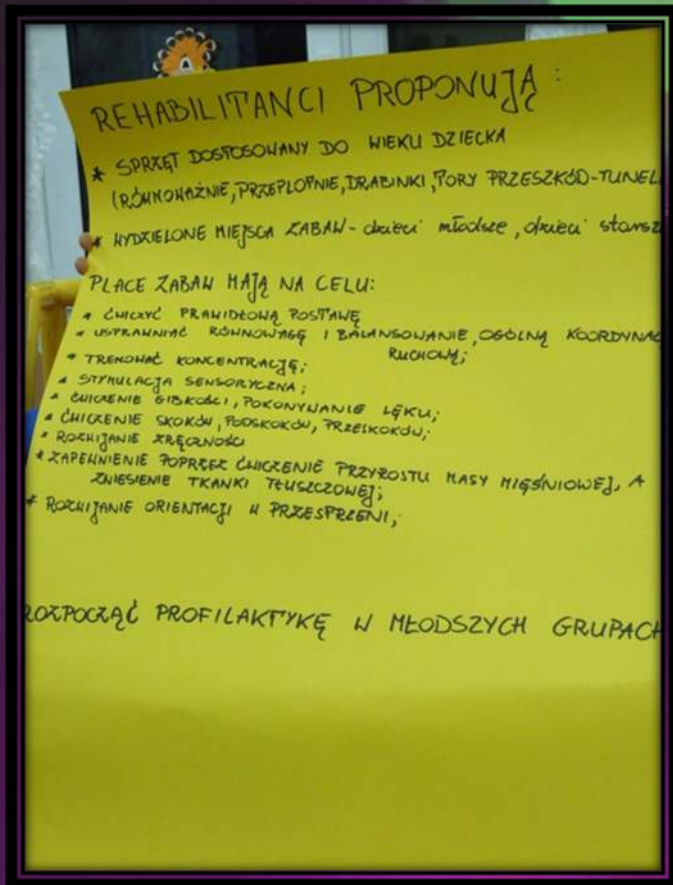 REHABILITANCI PROPONUJĄ:
* SPRZĘT DOSTOSOWANY DO WIEKU DZIECKA
(RÓWNOWAŻNIE, PRZEPLOTNIE, DRABINKI, TORY PRZESZKÓD-TUNEL
* WYDZIELONE MIEJSCA ZABAW - dzieci młodsze, dzieci starsz
PLACE ZABAW MAJĄ NA CELU:
* ĆWICZYĆ PRAWIDŁOWĄ POSTAWĘ
* USPRAWNIAĆ RÓWNOWAGĘ I BALANSOWANIE, OGÓLNĄ KOORDYNAC
RUCHOWĄ;
* TRENOWAĆ KONCENTRACJĘ;
* STYMULACJA SENSORYCZNA;
* ĆWICZENIE GIBKOŚCI, POKONYWANIE LĘKU;
* ĆWICZENIE SKOKÓW, PODSKOKÓW, PRZESKOKÓW;
* ROZWIJANIE ZRĘCZNOŚCI
* ZAPEWNIENIE POPRZEZ ĆWICZENIE PRZYROSTU MASY MIĘŚNIOWEJ, A
ZNIESIENIE TKANKI TŁUSZCZOWEJ;
* ROZWIJANIE ORIENTACJI W PRZESTRZENI;
ROZPOCZĄĆ PROFILAKTYKĘ W MŁODSZYCH GRUPACH